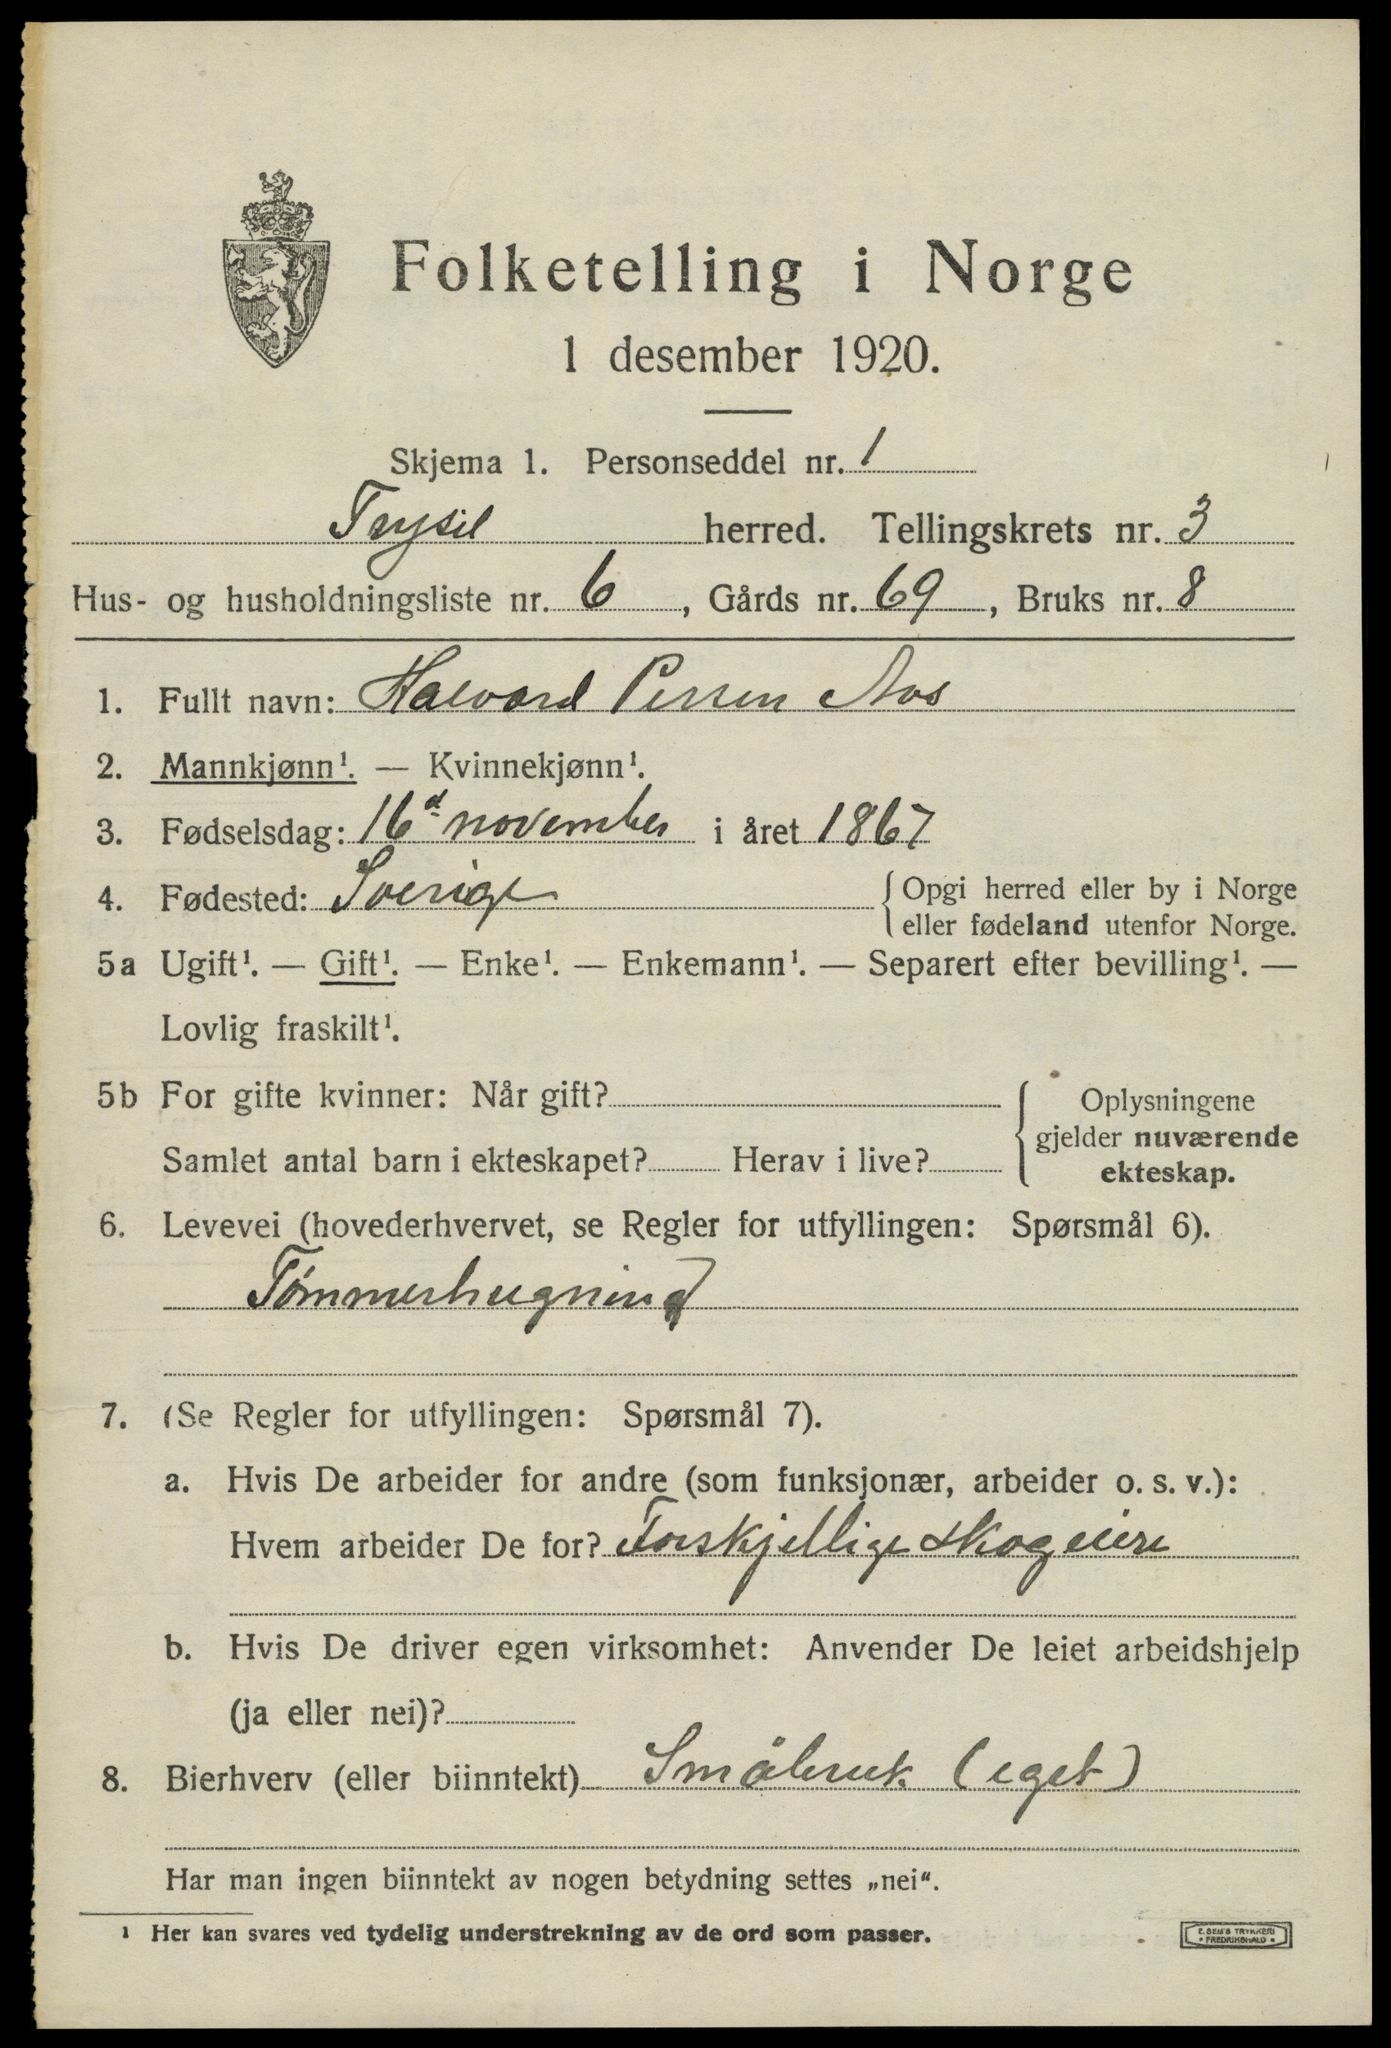 Folketelling i Norge
1 desember 1920.
Skjema 1. Personseddel nr. 1
Trysil herred. Tellingskrets nr. 3
Hus- og husholdningsliste nr. 6, Gårds nr. 69, Bruks nr. 8
1. Fullt navn: Halvard Persen Aas
2. Mannkjønn¹. — Kvinnekjønn¹.
3. Fødselsdag: 16d november i året 1867
4. Fødested: Sverige { Opgi herred eller by i Norge
eller fødeland utenfor Norge.
5a Ugift¹. — Gift¹. — Enke¹. — Enkemann¹. — Separert efter bevilling¹. —
Lovlig fraskilt¹.
5b For gifte kvinner: Når gift? { Oplysningene
gjelder nuværende
Samlet antal barn i ekteskapet? Herav i live? ekteskap.
6. Levevei (hovederhvervet, se Regler for utfyllingen: Spørsmål 6).
Tømmerhugning
7. (Se Regler for utfyllingen: Spørsmål 7).
a. Hvis De arbeider for andre (som funksjonær, arbeider o. s. v.):
Hvem arbeider De for? Forskjellige skogeiere
b. Hvis De driver egen virksomhet: Anvender De leiet arbeidshjelp
(ja eller nei)?
8. Bierhverv (eller biinntekt) Småbruk (eget)
Har man ingen biinntekt av nogen betydning settes „nei“.
¹ Her kan svares ved tydelig understrekning av de ord som passer.
E. SEM'S TRYKKERI
• FREDRIKSHALD •